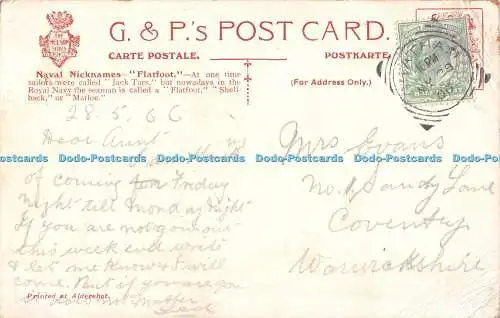 G. & P.'s POST CARD.
THE NELSON SERIES
CARTE POSTALE. POSTKARTE.
Naval Nicknames—"Flatfoot."—At one time
sailors were called "Jack Tars," but nowadays in the
Royal Navy the seaman is called a "Flatfoot," "Shell-
back," or "Matloe."
(For Address Only.)
28.5.06
Dear Aunt
of coming for Friday
night till Monday night
If you are not going out
this week end write
& let me know & I will
come. But if you are going
it does not matter
Jack
Mrs Evans
No. 1 Sandy Lane
Coventry
Warwickshire
Printed at Aldershot.
Dodo-Postcards Dodo-Postcards Dodo-Postcards Dodo-Postcards Dodo-Postcards